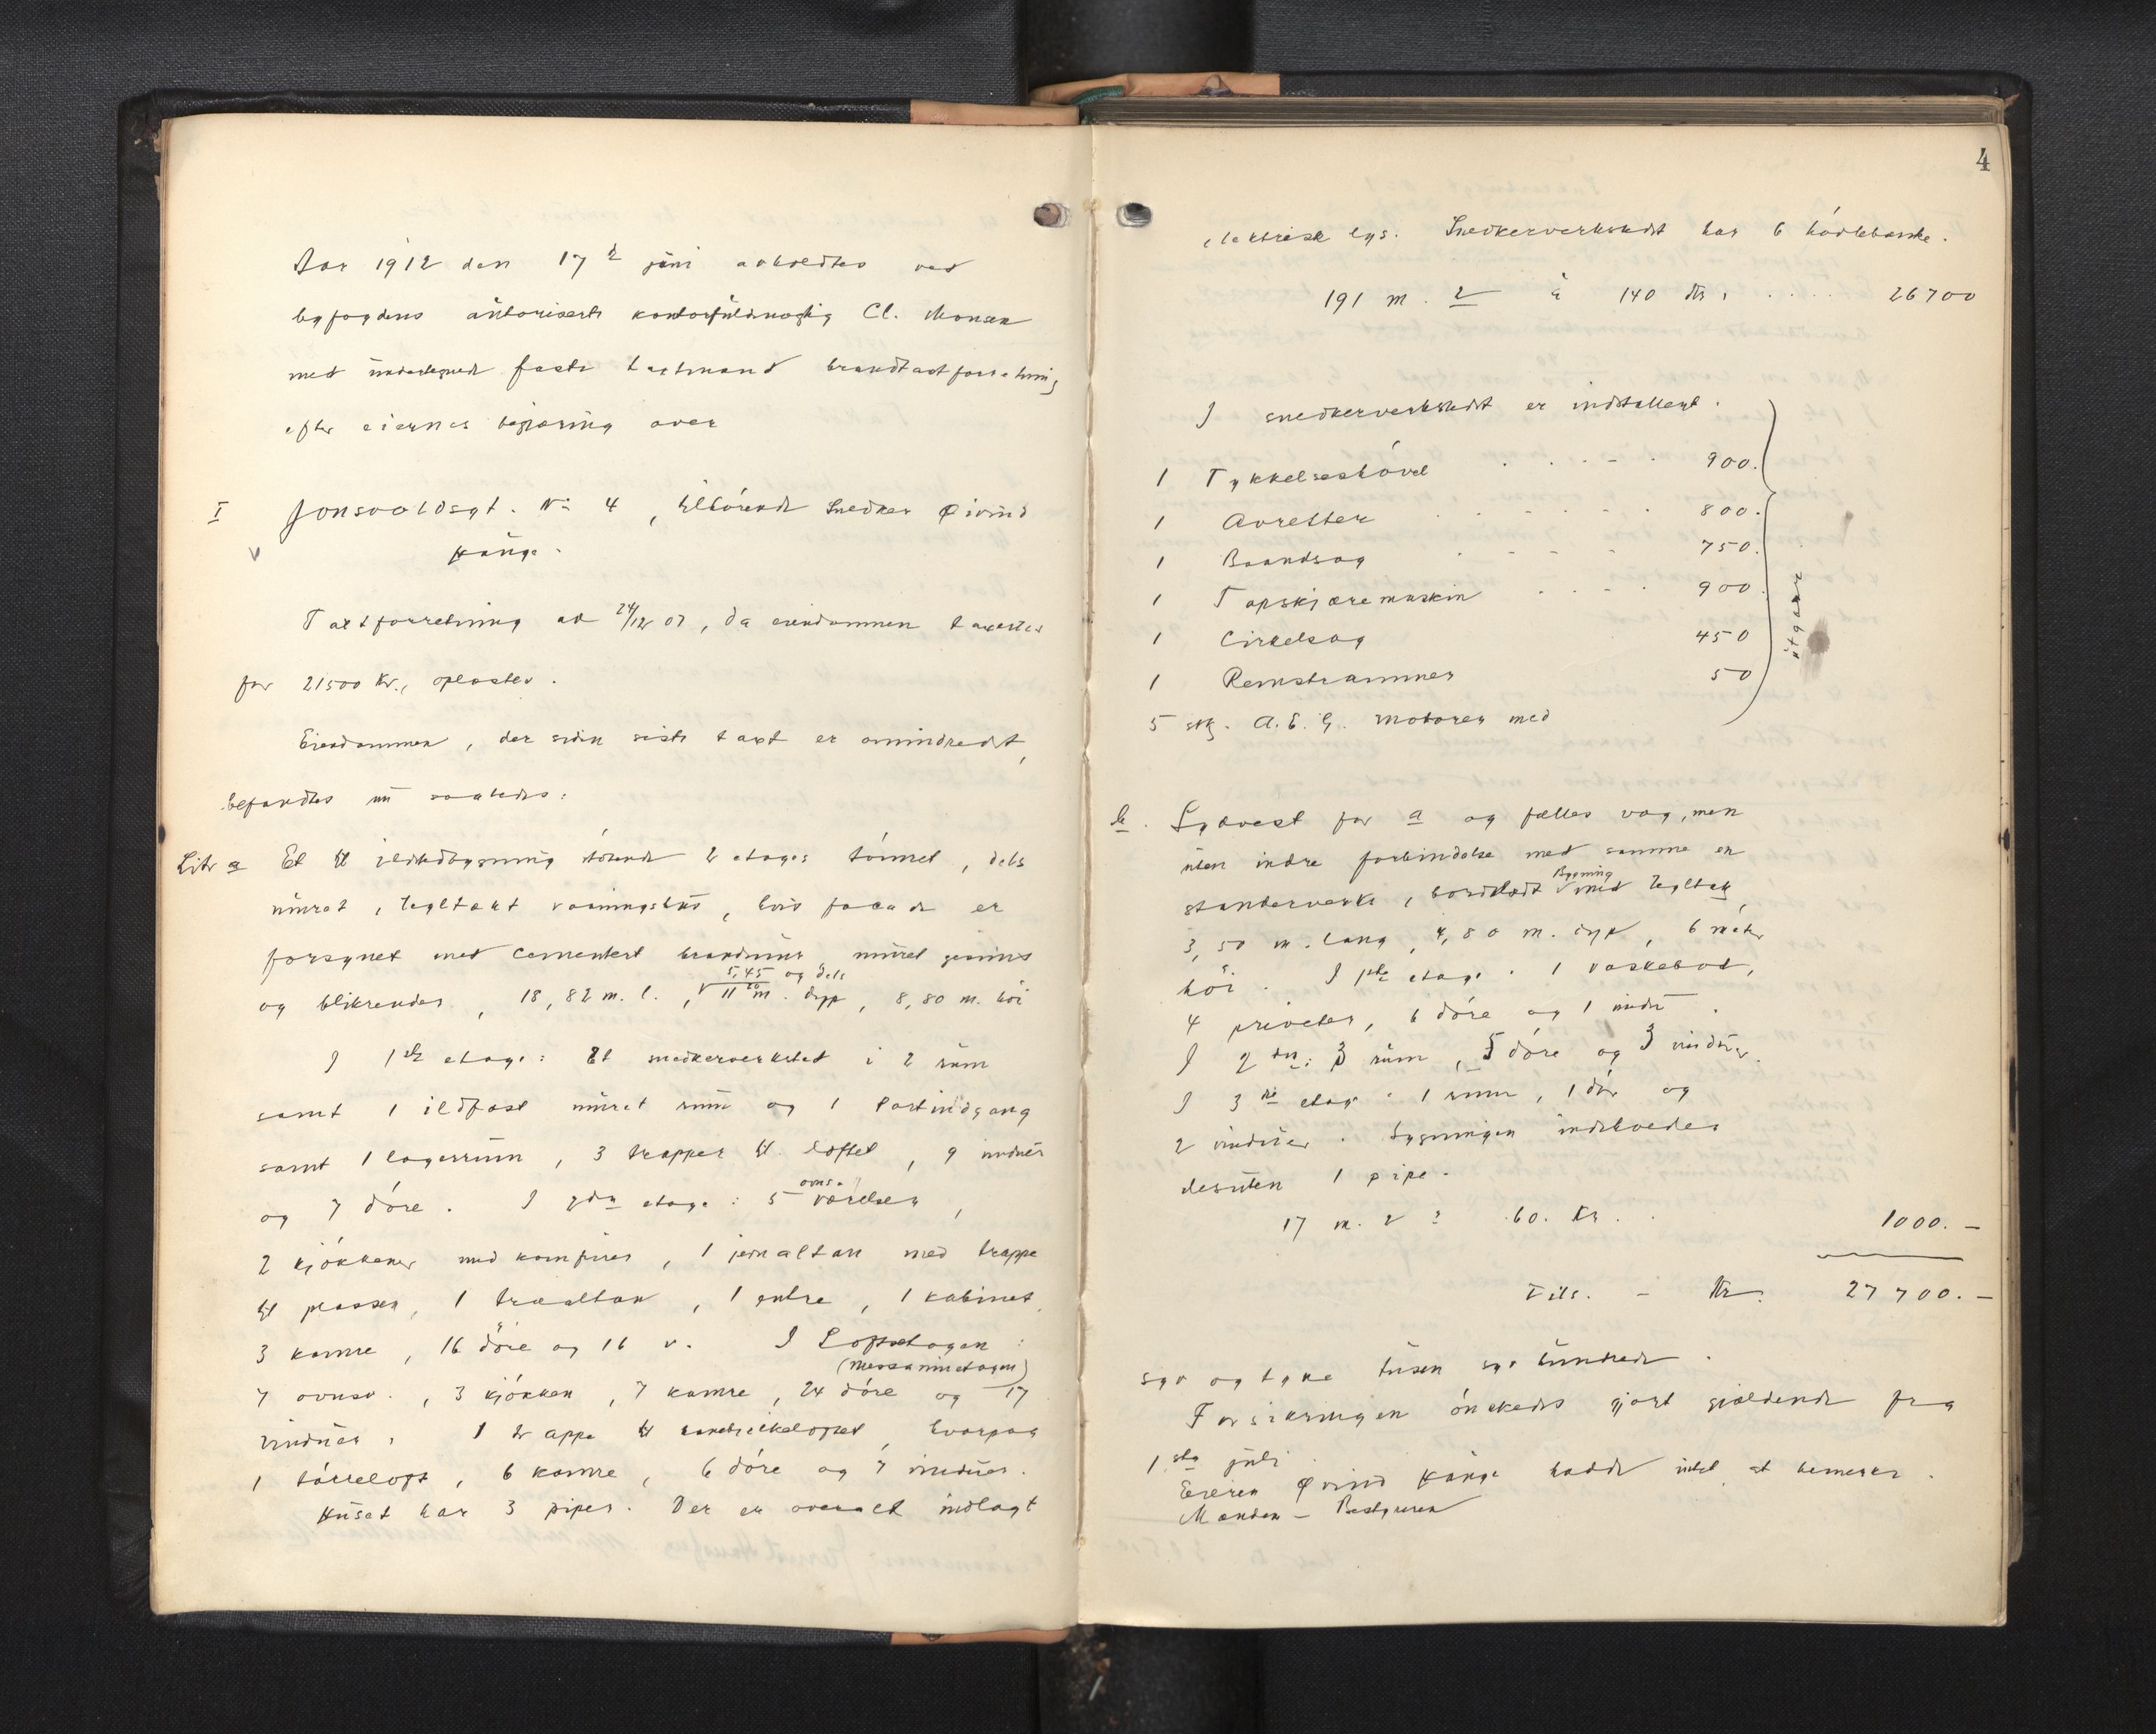 Aar 1912 den 17d juni avholdtes ved
byfogdens autoriserte kontorfuldmægtig Cl. Monsen
med undertegnede faste takstmænd brandtaxtforretning
efter eiernes begjæring over
I Jonsvoldsgt. No 4, tilhörende Snedker Øivind
Hauge.
Taxtforretning av 24/12 07, da eiendommen taxertes
for 21500 Kr., oplæstes.
Eiendommen, der siden siste taxt er omindredet,
befandtes nu saaledes:
Litr a Et til ildsbygning stötende 2 etages tömret, dels
muret, tegltækt vaaningshus, hvis facade er
forsynet med cementert brandmur, muret gesims
5,45 og dels
og blikrender, 18,82 m. l., 11 20 m. dyp, 8,80 m. höi
I 1ste etage: Et snedkerverksted i 2 rum
samt 1 ildfast muret rum og 1 Portindgang
samt 1 lagerrum, 3 trapper til loftet, 9 vinduer
og 7 döre. I 2den etage: 5 ovns. værelser,
2 kjökkener med komfurer, 1 jernaltan med trappe
til plassen, 1 træaltan, 1 entre, 1 kabinet,
3 kamre, 16 döre og 16 v. I Loftsetagen:
(Messaninetagen)
7 ovnsv., 3 kjökken, 7 kamre, 24 döre og 17
vinduer, 1 trappe til hanebjelkeloftet, hvorpaa
1 törreloft, 6 kamre, 6 döre og 7 vinduer.
Huset har 3 piper. Der er overalt indlagt
4
elektrisk lys. Snedkerverkstedet har 6 hövlebænke.
191 m. 2 à 140 Kr. . . . . 26700
I snedkerverkstedet er indstallert.
1 Tykkelseshövel . . . . . 900.
1 Avretter . . . . . . 800.
1 Baandsag . . . . 750.
1 Tapskjæremaskin . . . . 900.
1 Cirkelsag 450
1 Remstrammer 50
utgaar
5 stk. A.E.G. motorer med
b. Sydvest for a og fælles væg, men
uten indre forbindelse med samme en
Bygning
standerverks, bordklædt med tegltak,
3,50 m. lang, 4,80 m. dyp, 6 meter
höi. I 1ste etage: 1 vaskebod,
4 priveter, 6 döre og 1 vindu.
I 2den: 3 rum, 5 döre og 3 vinduer.
I 3die etage: 1 rum, 1 dör og
2 vinduer. Bygningen indeholder
desuten 1 pipe.
17 m. 2 à 60. Kr. . . 1000. -
Tils. - Kr. 27700. -
syv og tyve tusen syv hundrede.
Forsikringen önskedes gjort gjældende fra
1ste juli.
Eieren Øivind Hauge hadde intet at bemerke.